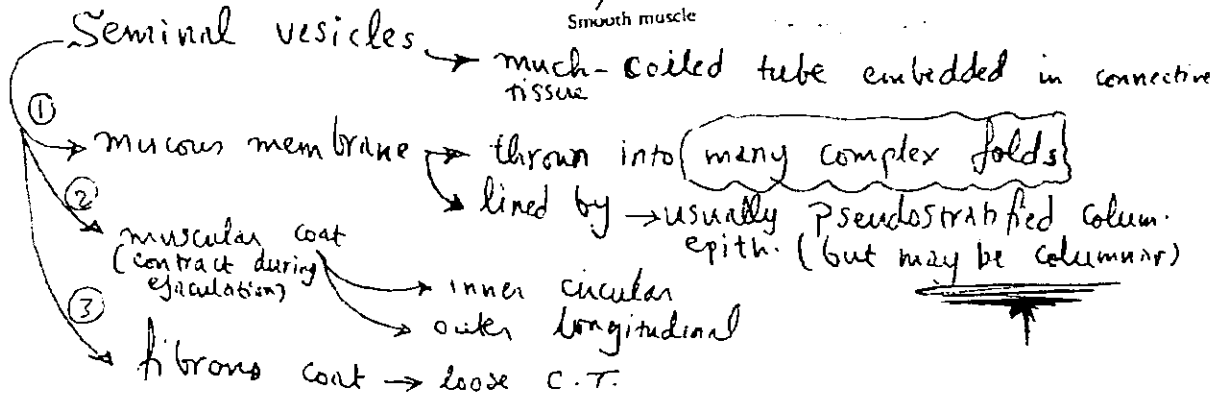 Smooth muscle
Seminal vesicles → much-coiled tube embedded in connective
tissue
①
mucous membrane → thrown into many complex folds
② lined by → usually Pseudostratified colum.
epith. (but may be columnar)
muscular coat
(contract during
ejaculation)
→ inner circular
③ → outer longitudinal
fibrous coat → loose C.T.